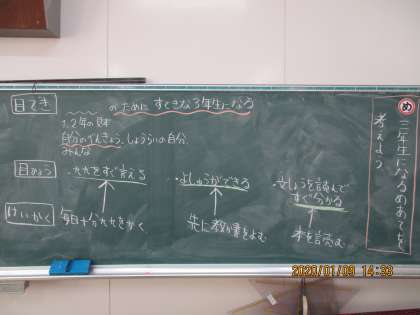 め 三年生になるめあてを
考えよう
目てき
のために すてきな3年生になる
1、2年の見本
自分のべんきょう、しょうらいの自分
みんな
目ひょう
・九九をすぐ言える
・よしゅうができる
・文しょうを読んで
すぐ分かる
けいかく
毎日十分九九をかく
先に教か書をよむ
本を読む
2020/01/09 14:33